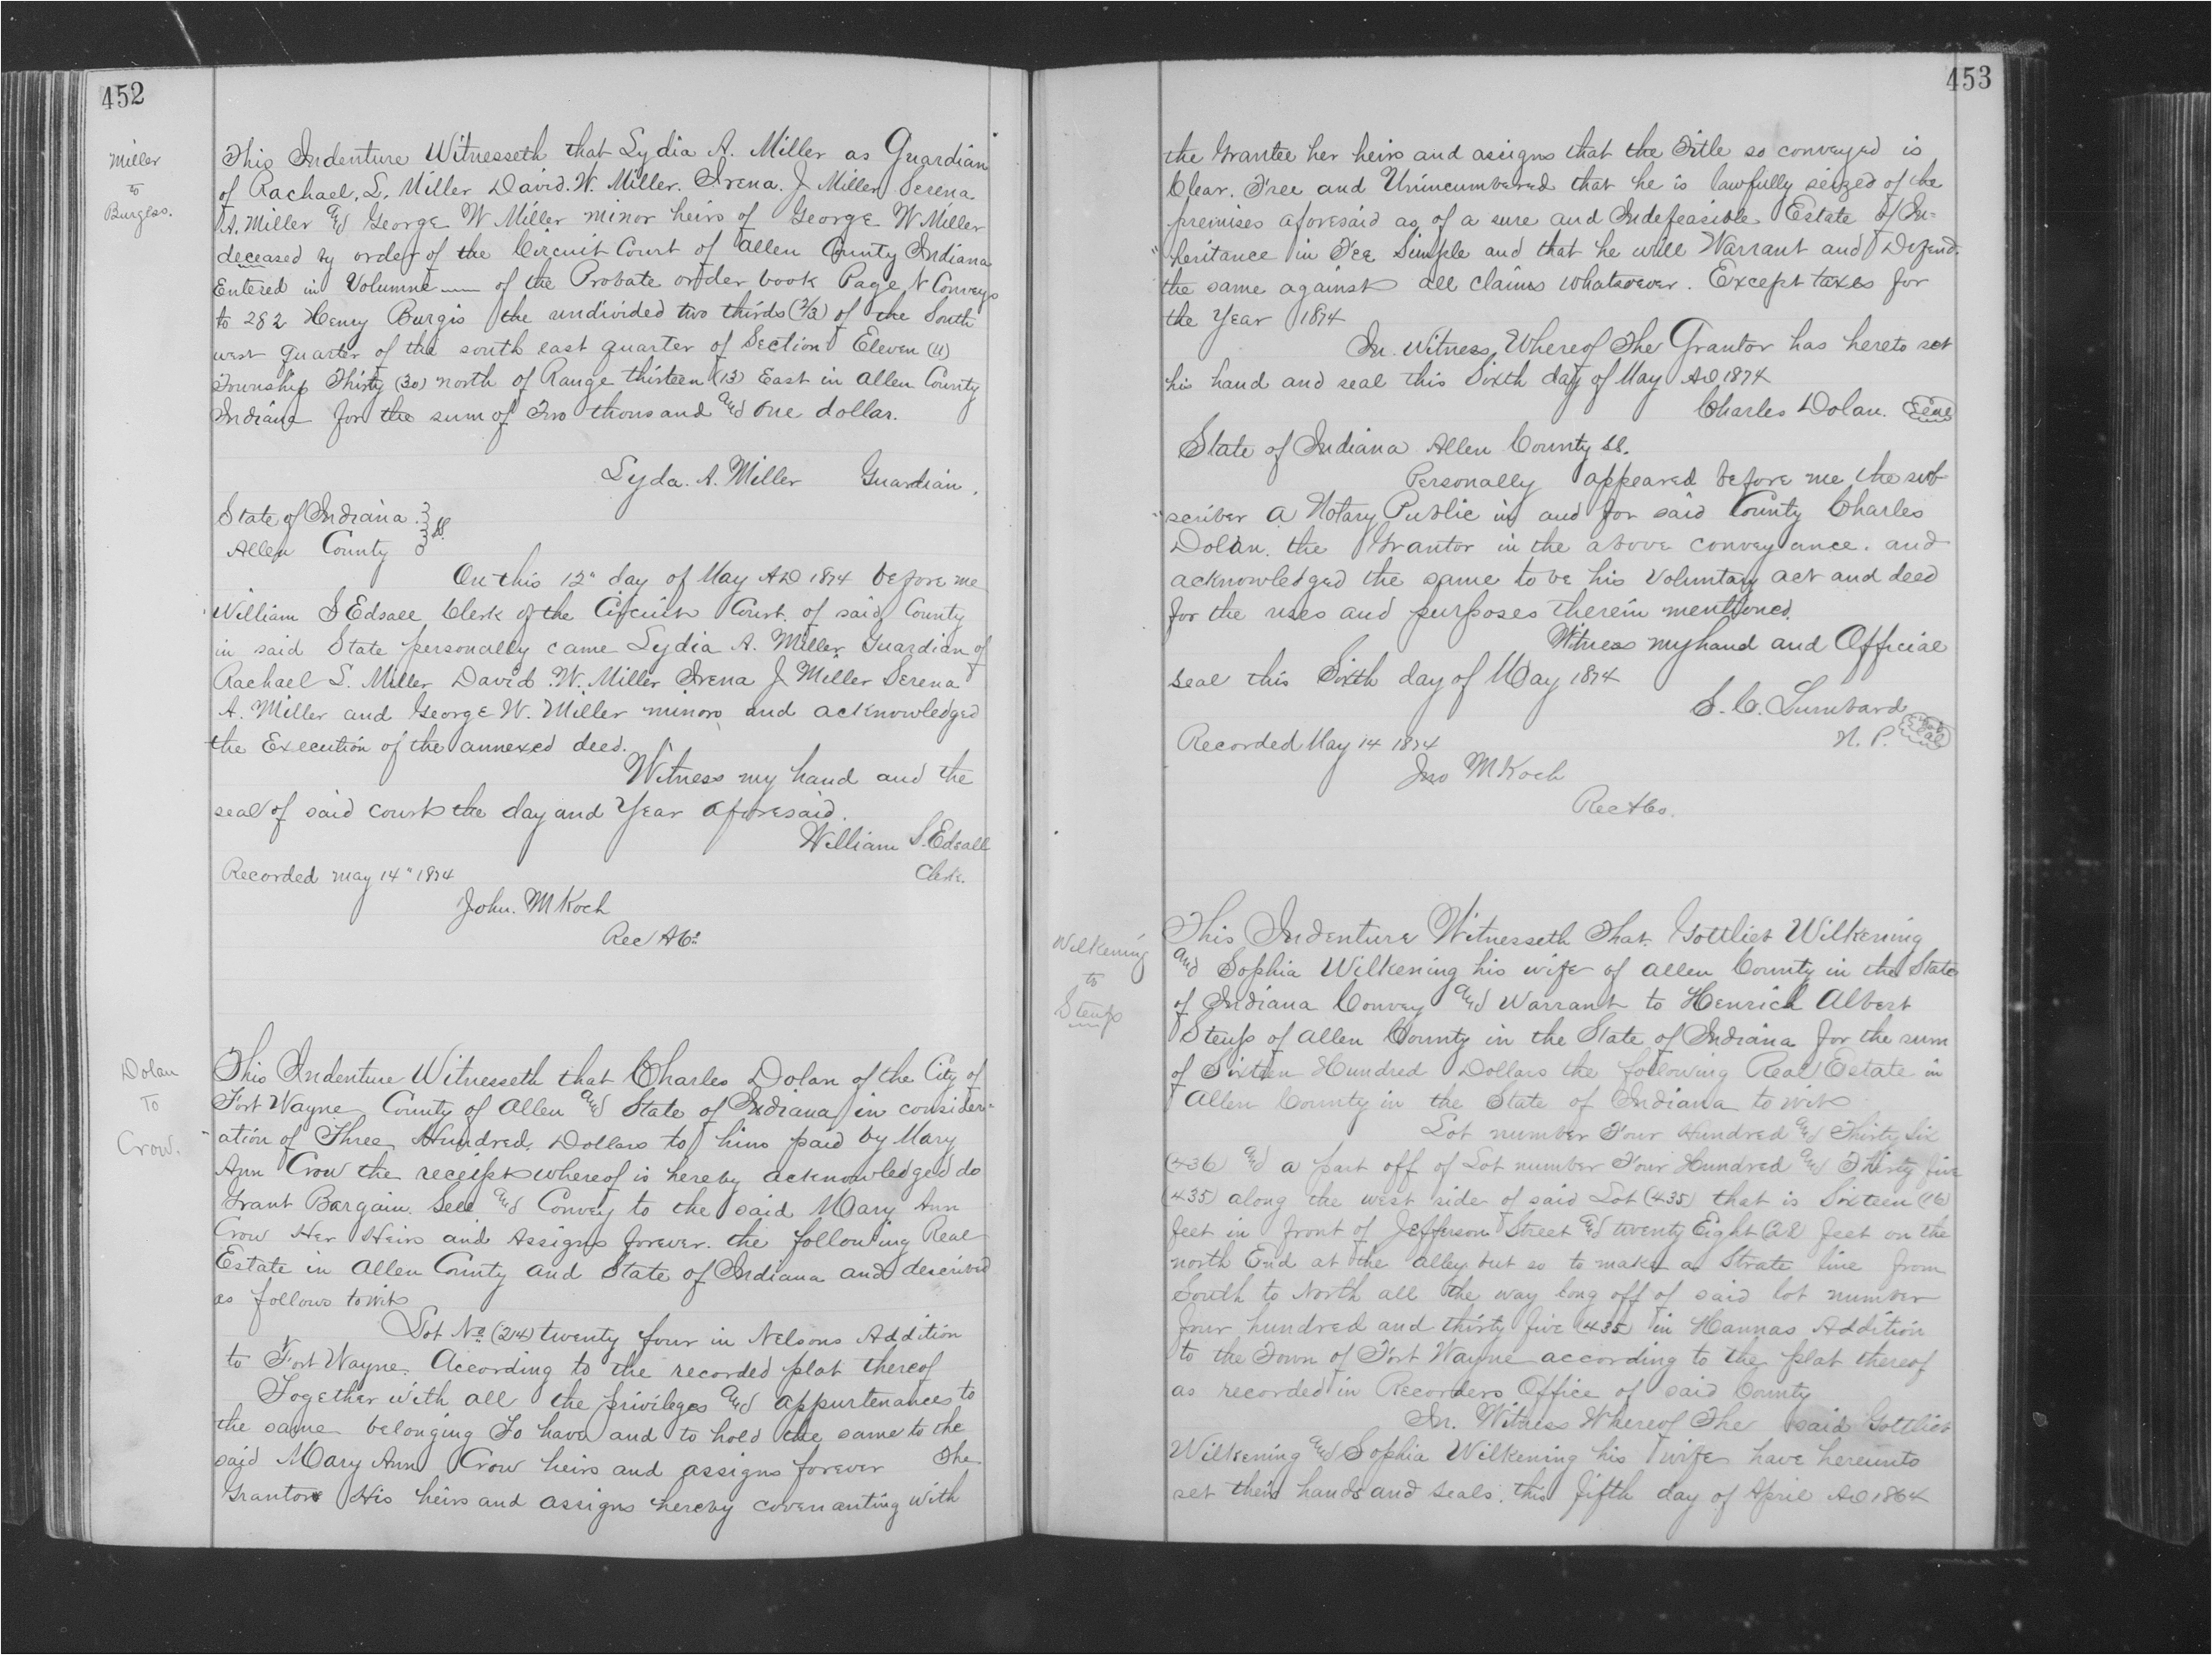 452
Miller
to
Burgess.
This Indenture Witnesseth that Lydia A. Miller as Guardian
of Rachael. L. Miller David. W. Miller. Irena. J Miller Serena
A. Miller and George W Miller minor heirs of George W Miller
deceased by order of the Circuit Court of Allen County Indiana
Entered in Volumne — of the Probate order book Page & Conveys
to 282 Henry Burgis the undivided two thirds (2/3) of the South
west quarter of the south east quarter of Section Eleven (11)
Township Thirty (30) north of Range thirteen (13) East in Allen County
Indiana for the sum of Two thousand and one dollar.
Lyda. A. Miller Guardian.
State of Indiana } ss.
Allen County }
On this 12" day of May AD 1874 before me
William S Edsall Clerk of the Circuit Court of said County
in said State personally came Lydia A. Miller Guardian of
Rachael L. Miller David W. Miller Irena J Miller Serena
A. Miller and George W. Miller minors and acknowledged
the Execution of the annexed deed.
Witness my hand and the
seal of said court the day and Year aforesaid.
William S. Edsall
Clerk.
Recorded May 14" 1874
John. M Koch
Rec A Co
Dolan
To
Crow.
This Indenture Witnesseth that Charles Dolan of the City of
Fort Wayne County of Allen and State of Indiana in consider-
ation of Three Hundred Dollars to him paid by Mary
Ann Crow the receipt whereof is hereby acknowledged do
Grant Bargain. Sell and Convey to the said Mary Ann
Crow Her Heirs and Assigns forever. the following Real
Estate in Allen County and State of Indiana and described
as follows towit
Lot No. (24) twenty four in Nelsons Addition
to Fort Wayne. According to the recorded plat thereof
Together with all the privileges and appurtenances to
the same belonging To have and to hold the same to the
said Mary Ann Crow heirs and assigns forever The
Grantor His heirs and assigns hereby covenanting with
453
the Grantee her heirs and assigns that the Title so conveyed is
Clear. Free and Unincumbered that he is lawfully seized of the
premises aforesaid as of a sure and Indefeasible Estate of In=
heritance in Fee Simple and that he will Warrant and Defend.
the same against all claims whatsoever. Except taxes for
the Year 1874
In Witness Whereof The Grantor has hereto set
his hand and seal this Sixth day of May AD 1874
Charles Dolan. Seal
State of Indiana Allen County ss.
Personally appeared before me the sub
scriber a Notary Public in and for said County Charles
Dolan. the Grantor in the above conveyance. and
acknowledged the same to be his Voluntary act and deed
for the uses and purposes therein mentioned.
Witness my hand and Official
seal this Sixth day of May 1874
S. C. Lumbard
N. P. Seal
Recorded May 14 1874
Jno M Koch
Rec A Co.
Wilkening
to
Steup
This Indenture Witnesseth That Gottlieb Wilkening
and Sophia Wilkening his wife of Allen County in the State
of Indiana Convey and Warrant to Henrich Albert
Steup of Allen County in the State of Indiana for the sum
of Sixteen Hundred Dollars the following Real Estate in
Allen County in the State of Indiana to wit
Lot number Four Hundred and Thirty Six
(436) and a part off of Lot number Four Hundred and Thirty five
(435) along the west side of said Lot (435) that is Sixteen (16)
feet in front of Jefferson Street and twenty Eight (28) feet on the
north End at the alley but so to make a Strate line from
South to North all the way long off of said lot number
four hundred and thirty five (435) in Hannas Addition
to the Town of Fort Wayne according to the plat thereof
as recorded in Recorders Office of said County
In. Witness Whereof The said Gottlieb
Wilkening and Sophia Wilkening his wife have hereunto
set their hands and seals. this fifth day of April AD 1864